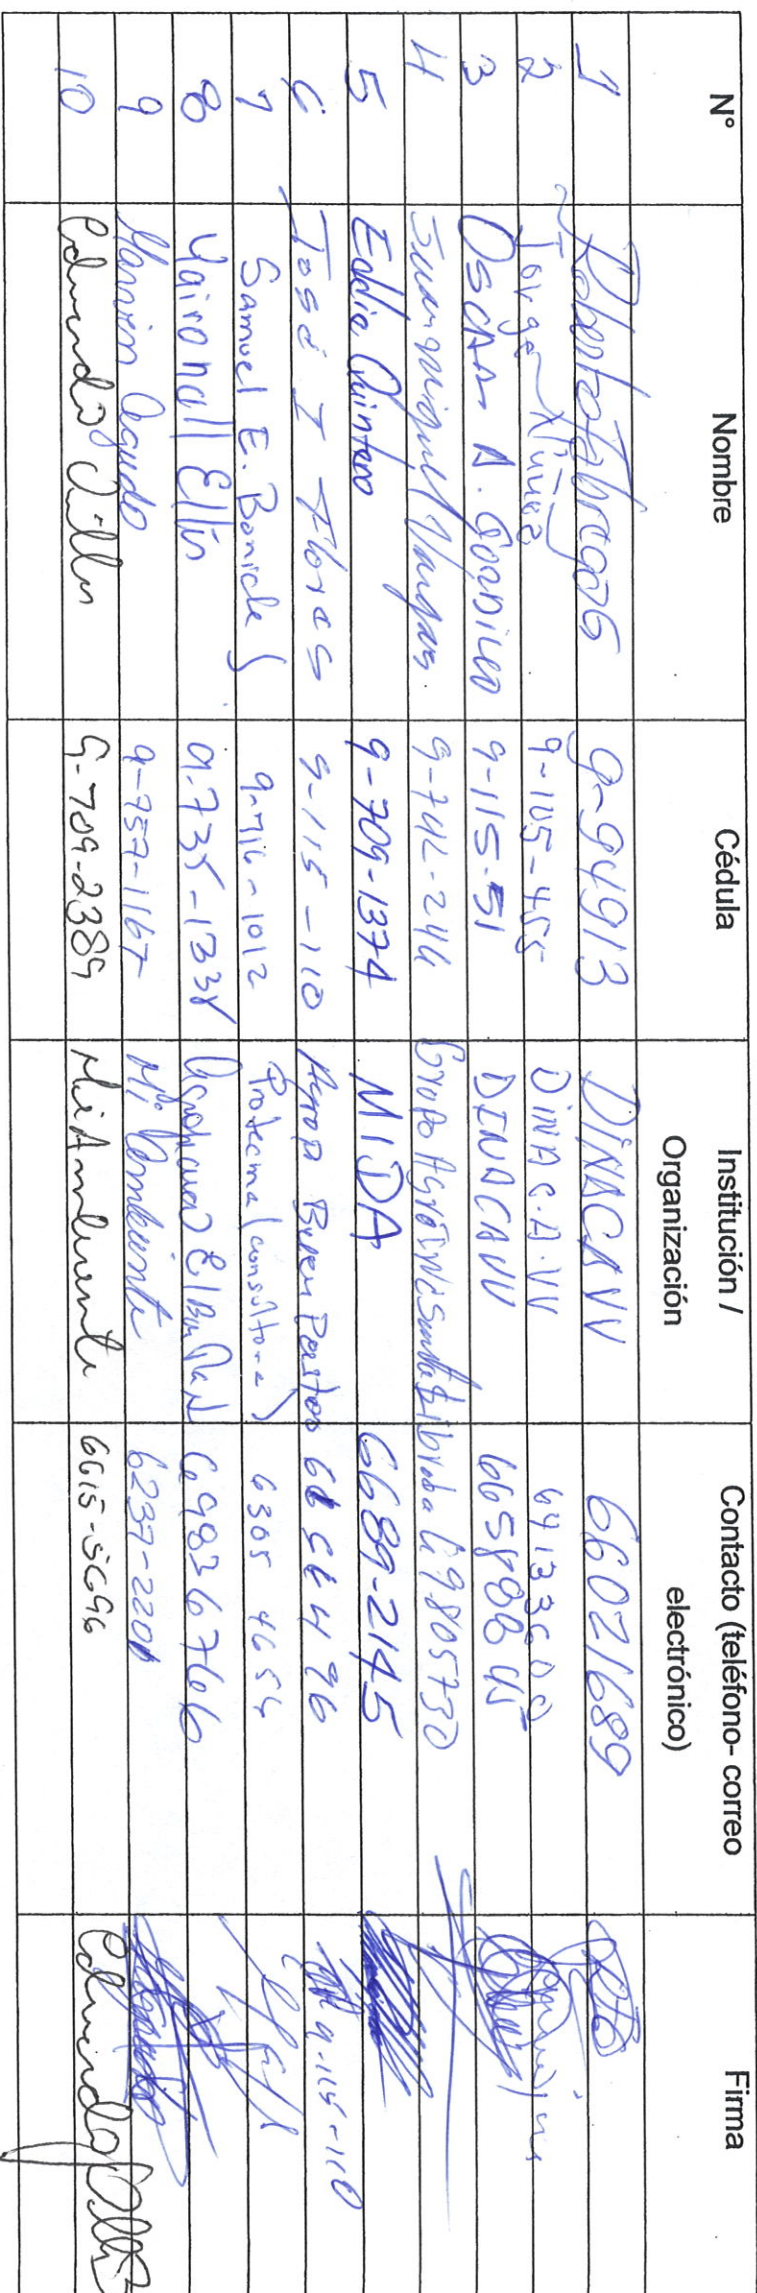 N° Nombre Cédula Institución / Organización Contacto (teléfono- correo electrónico) Firma
1 Roberto Abrego G 9-94913 DINACAVV 66021689
2 Jorge Núñez 9-105-455 DINAC.A.VV 69133600
3 OSCAR A. GORDILLO 9-115-51 DINACAVV 66588845
4 Juan Miguel Vargas 9-742-244 Grupo Agro 69805730
5 Eddie Quintero 9-709-1374 MIDA 6689-2145
6 José I Flores 9-115-110 Agro Buen Pastor 9-115-110
7 Samuel E. Bonicle 9-716-1012 Protecma (consultora) 6305 4654
8 Yaironall Ellis 9-735-1338 69836766
9 9-757-1167 Mi Ambiente 6237-2201
10 9-709-2389 MiAmbiente 6615-5696